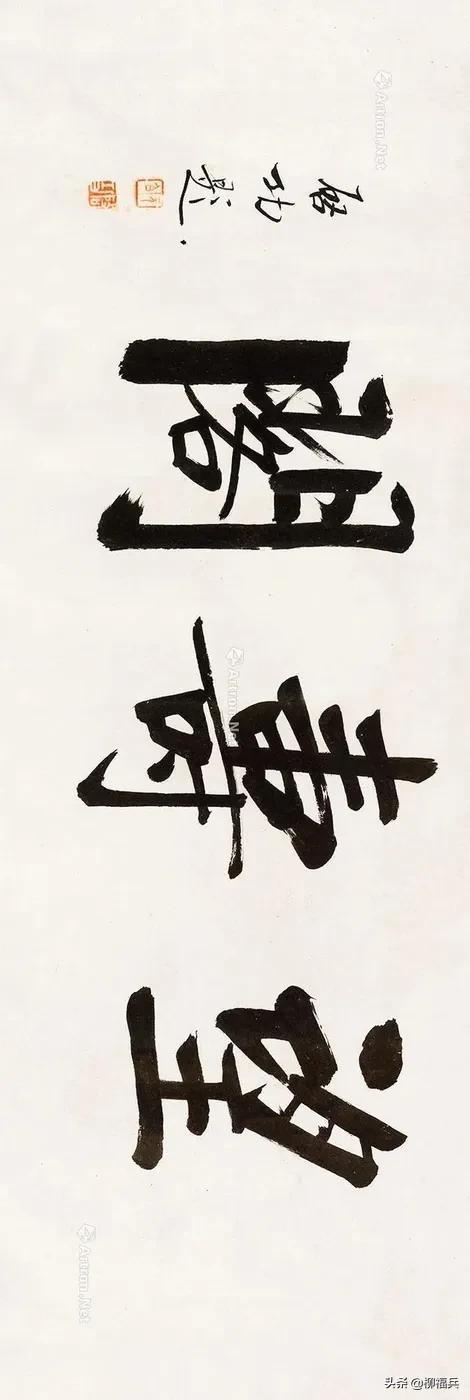 望壽閣
启功題
Artron.Net
Artron.Net
Artron.Net
头条 @柳福兵